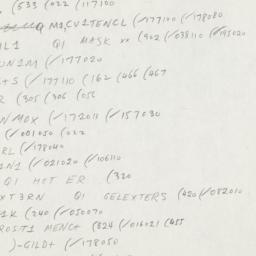 (533 (022 (117100
Q MI,CV1TENCL (✓177100 (✓178080
IL1 Q1 MASK xx (902 (✓038110 (✓195020
UN1M (✓177020
+S (✓177110 (162 (466 (467
R (305 (306 (056
N/MOX (✓172011 (✓157030
(✓001050 (022
RL (✓178040
1N1 (✓021020 (✓106110
Q1 HOT ER (320
XT3RN Q1 GELEXTERS (420 (✓082010
1K (240 (✓050070
ROST1 MENG+ (824 (✓016021 (455
)-GILD+ (✓178050